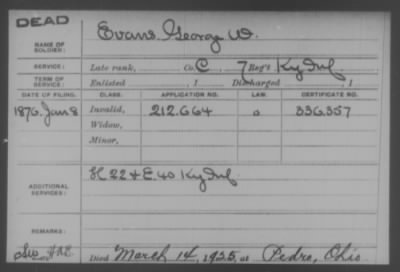 DEAD
NAME OF SOLDIER: Evans, George W.
SERVICE: Late rank, Co. C, 7 Reg't Ky Inf.
TERM OF SERVICE: Enlisted , 1 Discharged , 1
DATE OF FILING. CLASS. APPLICATION NO. LAW. CERTIFICATE NO.
1876, Jan 8 Invalid, 212.664 336.357
Widow,
Minor,
ADDITIONAL SERVICES: H 22 & E. 40 Ky Inf.
REMARKS:
Died March 14, 1925, at Pedro, Ohio